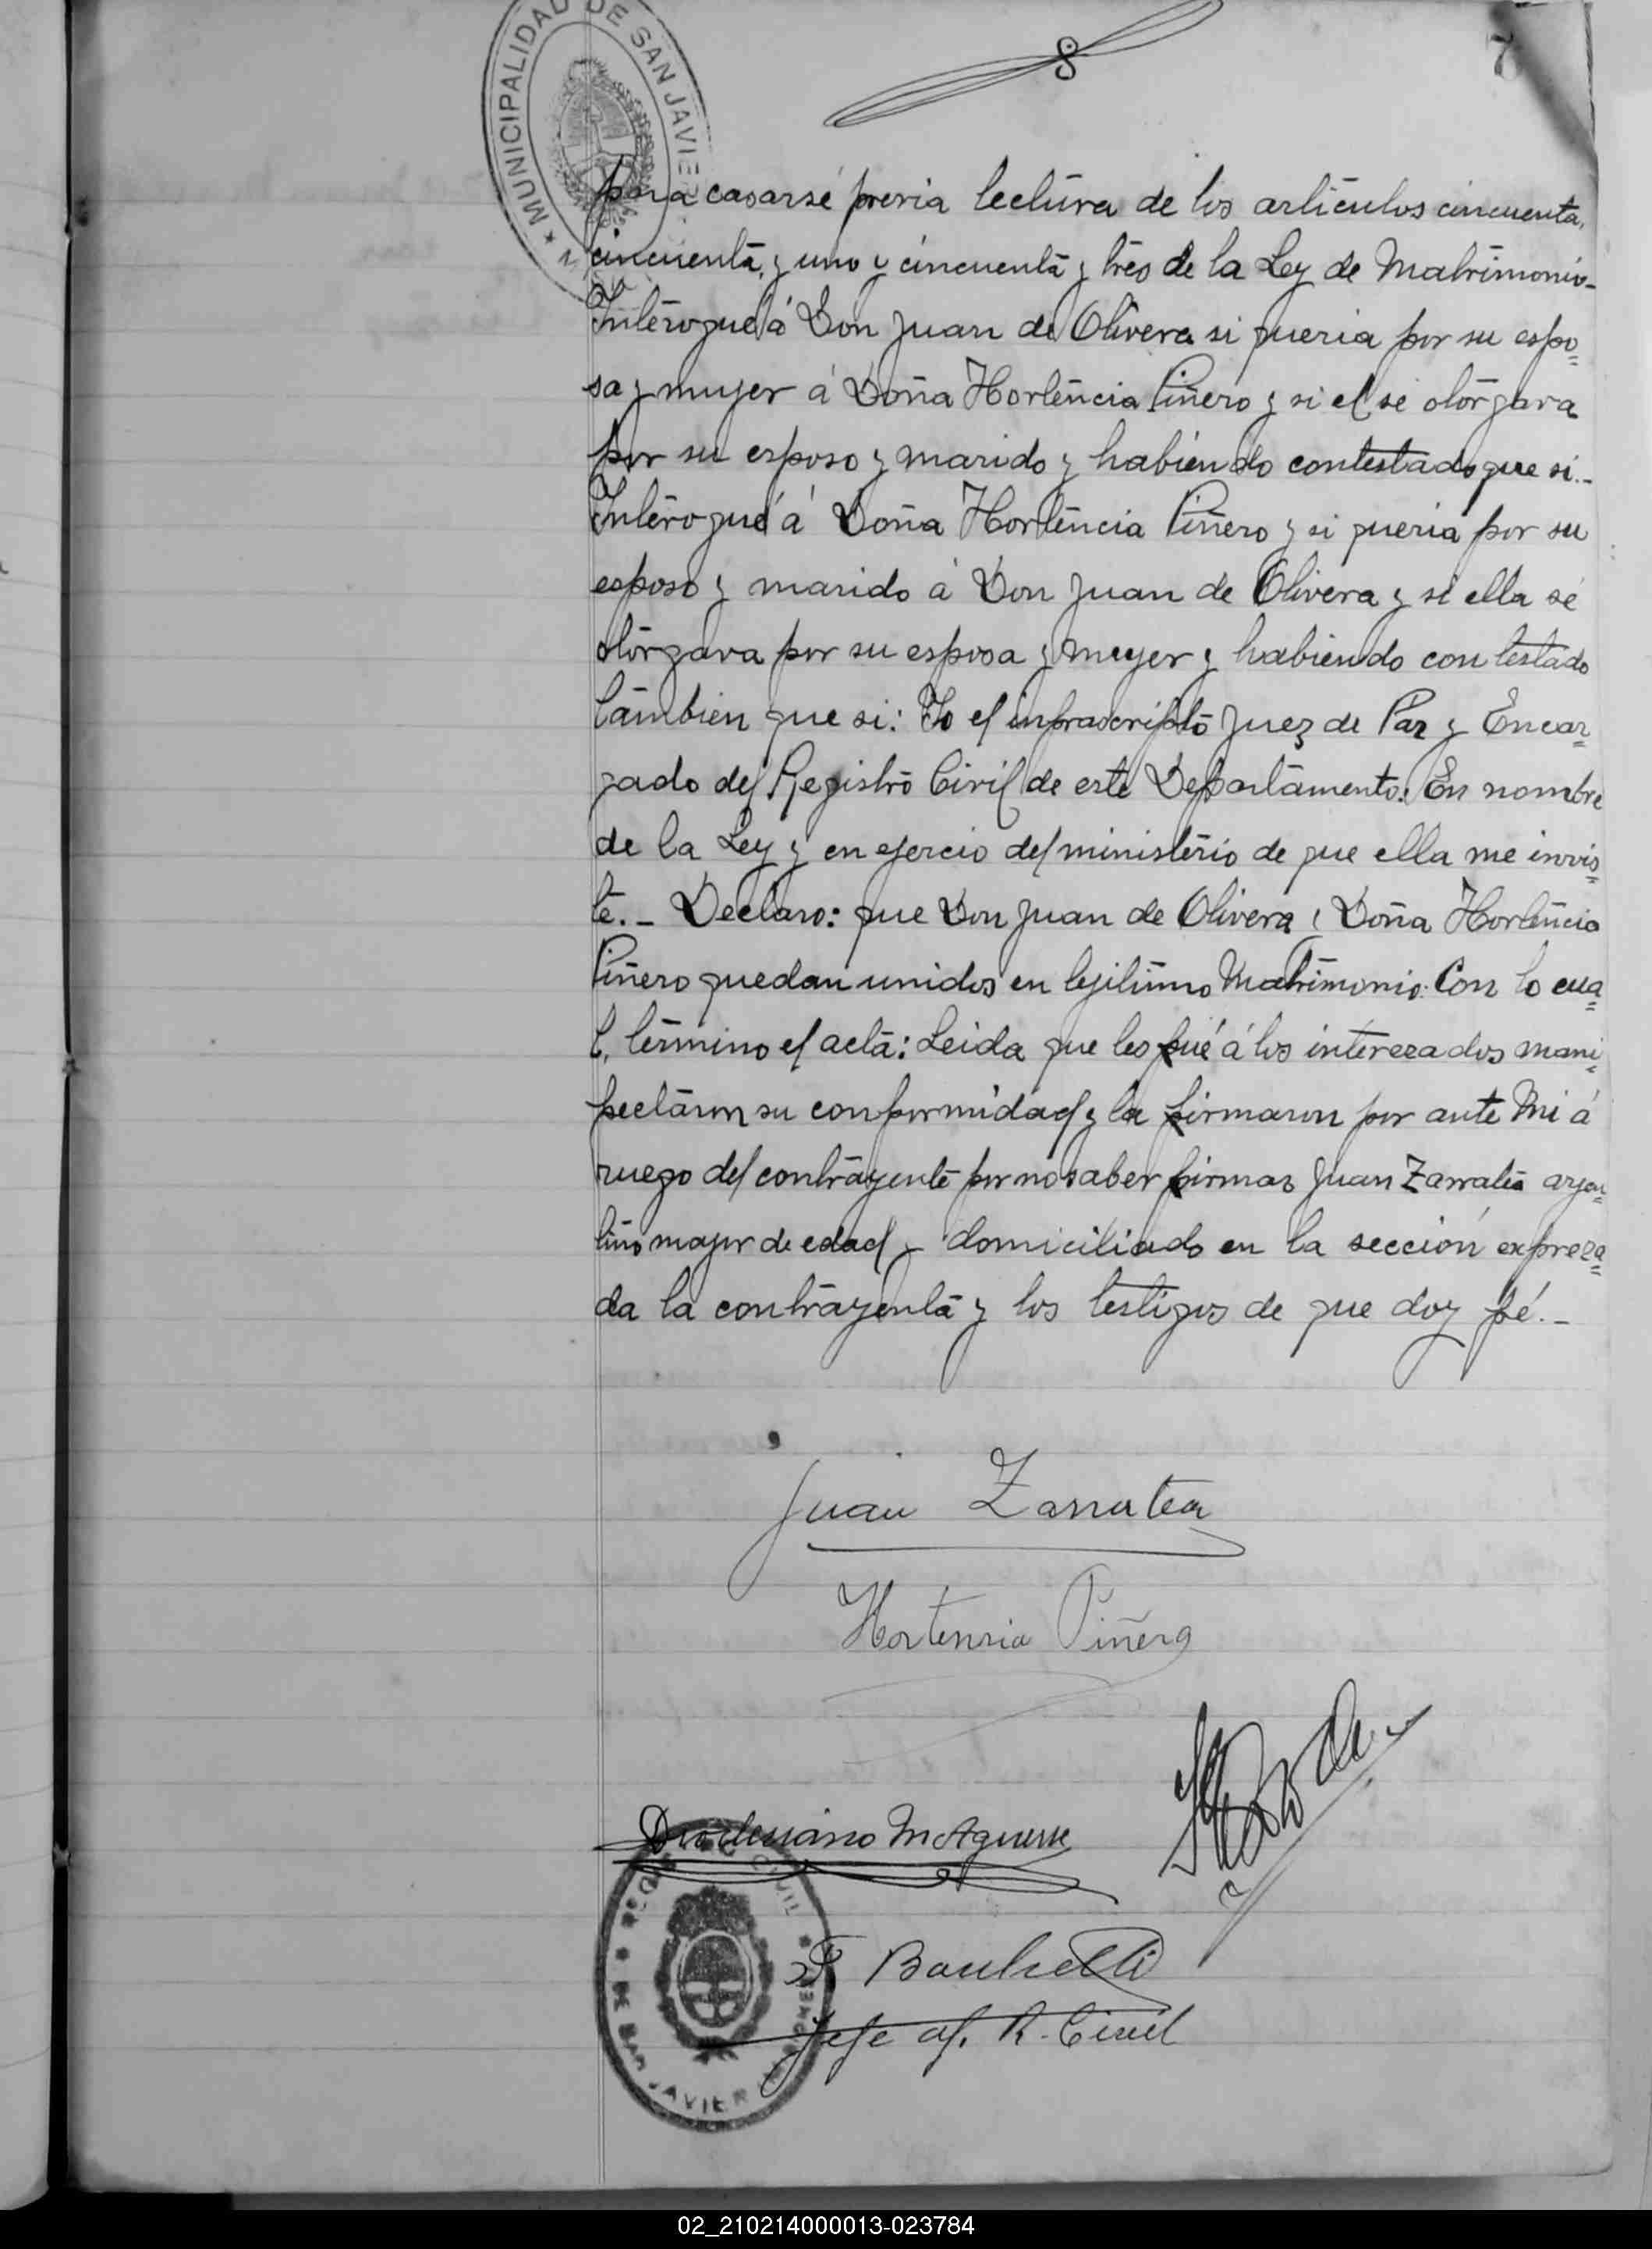 MUNICIPALIDAD DE SAN JAVIER
8
7
para casarse previa lectura de los articulos cincuenta,
cincuenta, y uno y cincuenta y tres de la Ley de Matrimonio-
Interogué á Don Juan de Olivera si queria por su espo=
sa y mujer á Doña Hortencia Piñero y si el se otorgava
por su esposo y marido y habiendo contestado que si.-
Interogué á Doña Hortencia Piñero y si queria por su
esposo y marido á Don Juan de Olivera y si ella se
otorgava por su esposa y mujer y habiendo contestado
tambien que si: Yo el infrascripto Juez de Paz y Encar=
gado del Registro Civil de este Departamento: En nombre
de la Ley y en ejercio del ministerio de que ella me invis=
te.- Declaro: que Don Juan de Olivera y Doña Hortencia
Piñero quedan unidos en lejitimo Matrimonio. Con lo cua=
l, termino el acta: Leida que les fué á los interezados mani=
fectaron su conformidad y la firmaron por ante Mi á
ruego del contrayente por no saber firmar Juan Zarratea arjen=
tino mayor de edad y domiciliado en la sección expreza=
da la contrayenta y los testigos de que doy fé.-
Juan Zarratea
Hortensia Piñero
M Aguirre
Jefe of. R. Civil
CIVIL
DE SAN JAVIER
02_210214000013-023784